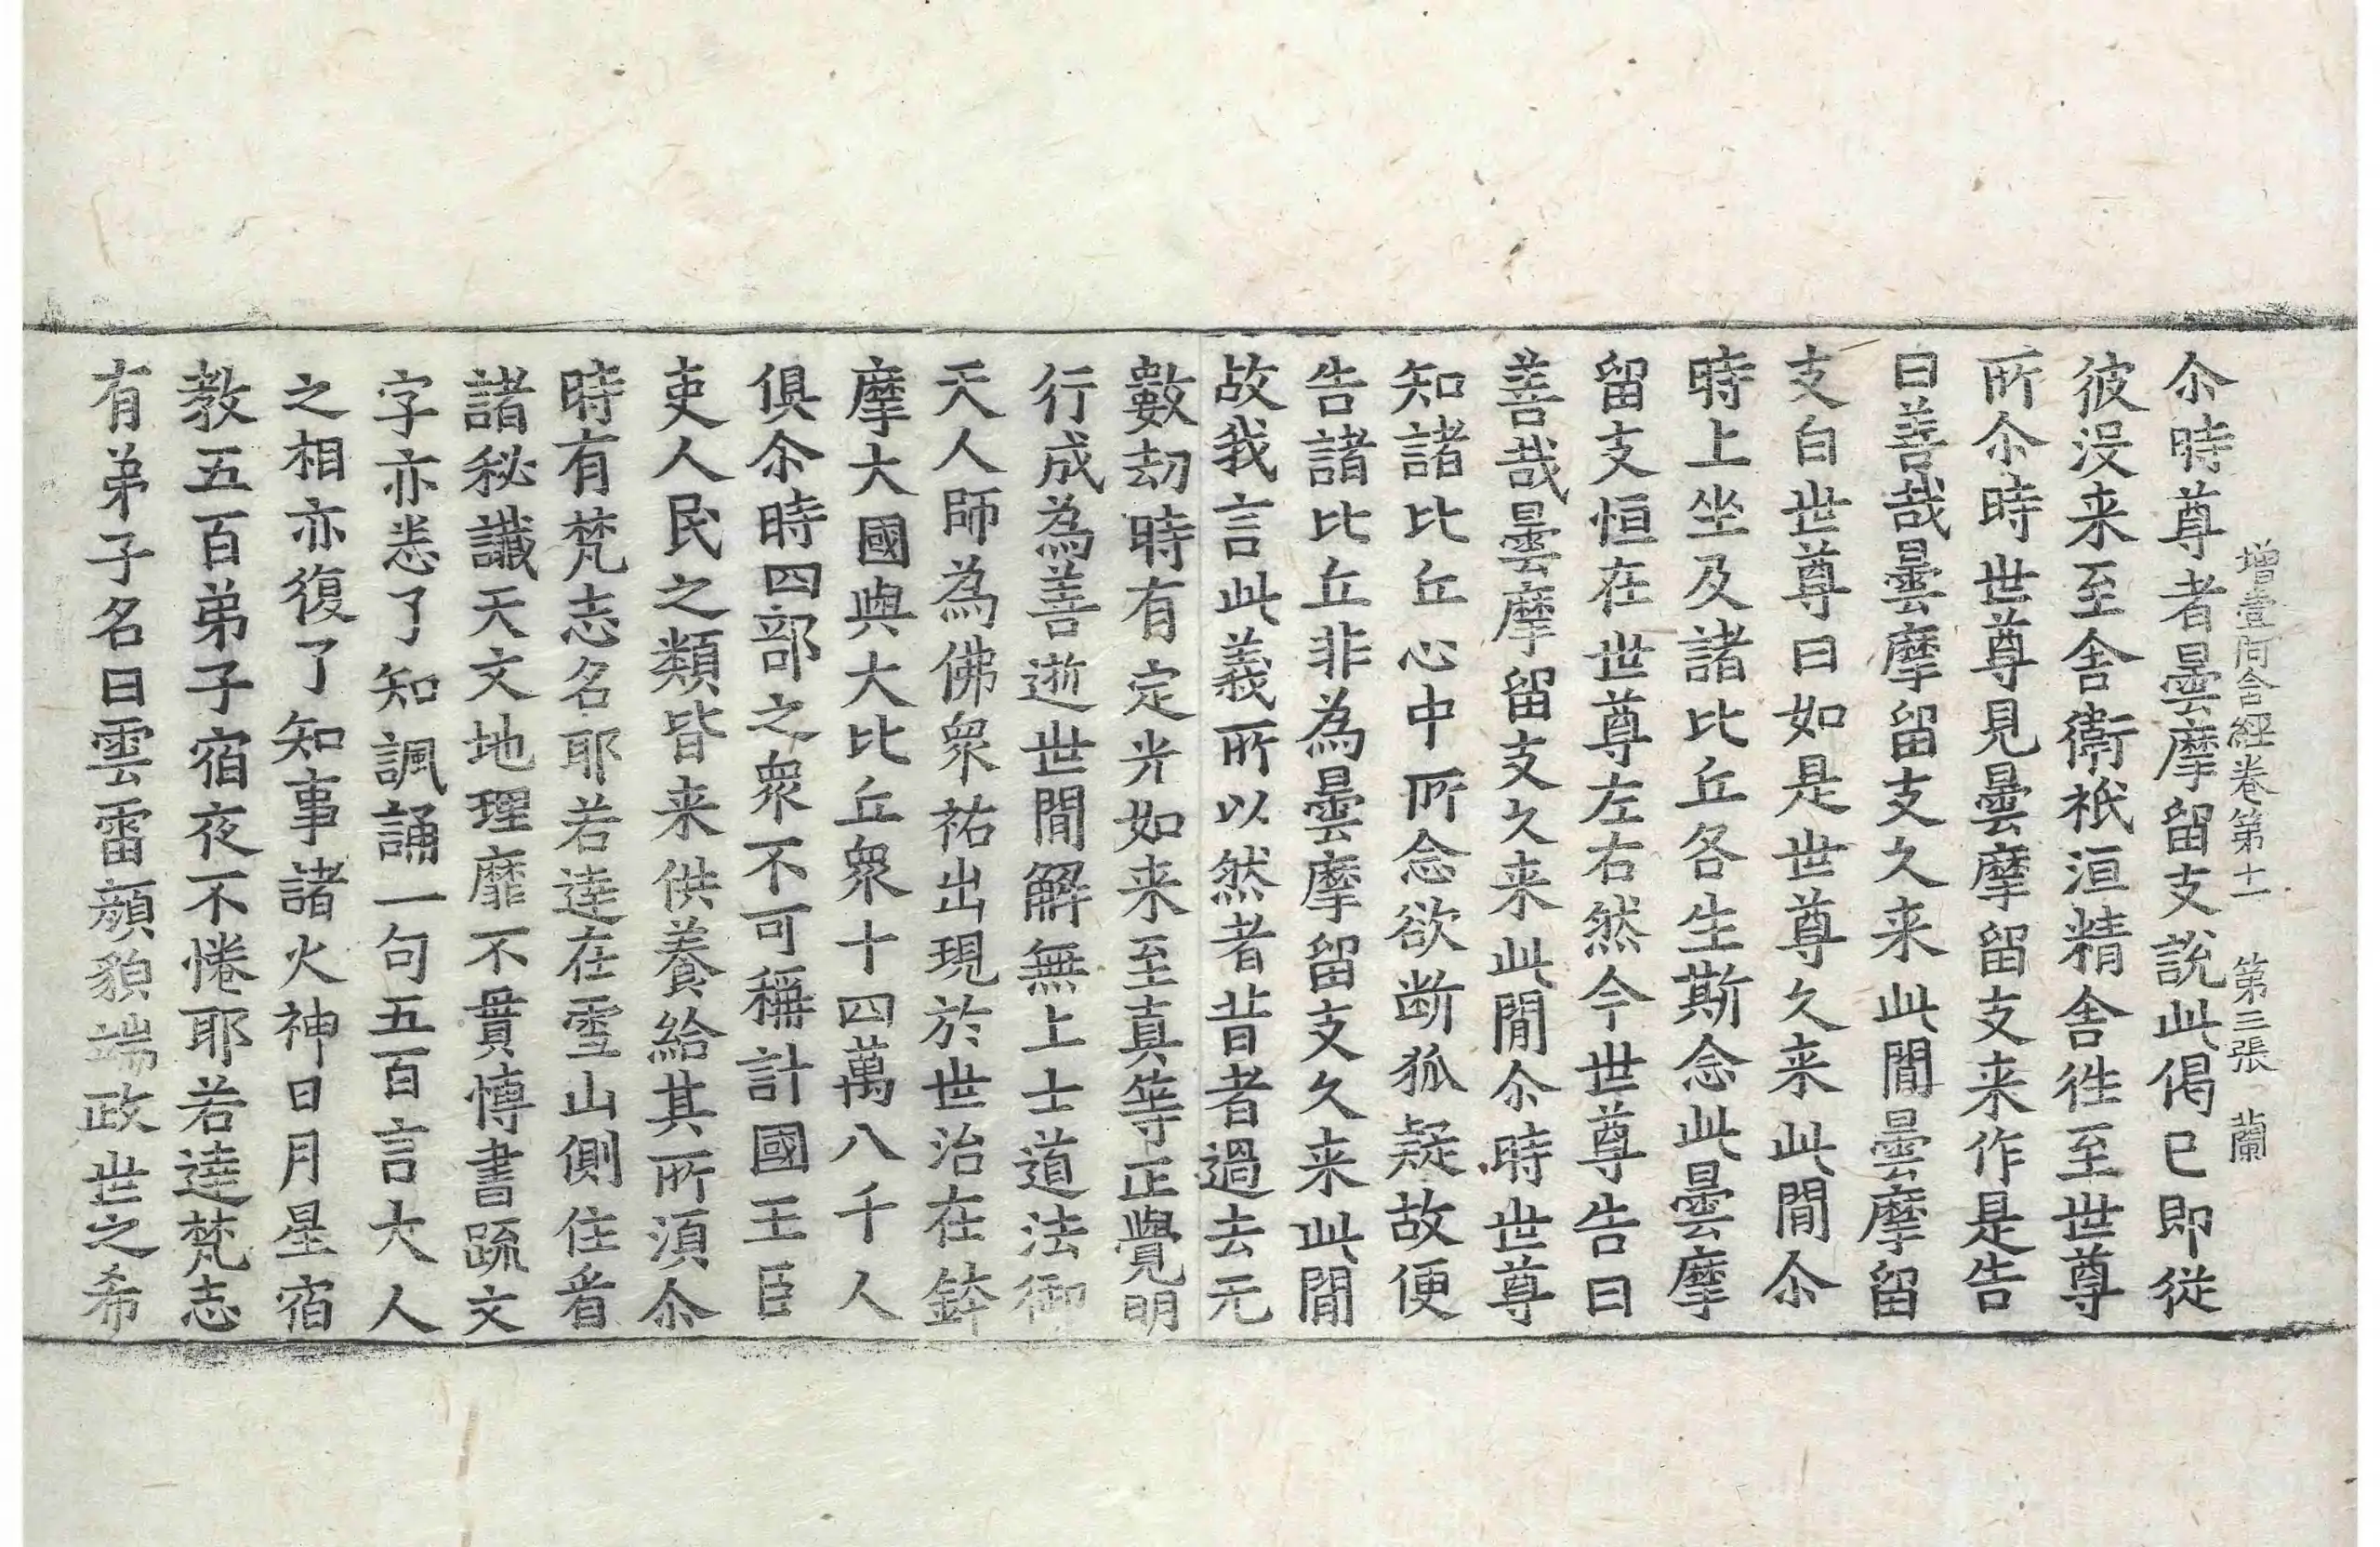 增壹阿含經卷第十一 第三張 蘭
尒時尊者曇摩留支說此偈已即從
彼没来至舎衛祇洹精舎徃至世尊
所尒時世尊見曇摩留支来作是告
曰善哉曇摩留支久来此閒曇摩留
支白世尊曰如是世尊久来此閒尒
時上坐及諸比丘各生斯念此曇摩
留支恒在世尊左右然今世尊告曰
善哉曇摩留支久来此閒尒時世尊
知諸比丘心中所念欲断狐疑故便
告諸比丘非為曇摩留支久来此閒
故我言此義所以然者昔者過去元
數劫時有定光如来至真等正覺明
行成為善逝世閒解無上士道法御
天人師為佛衆祐出現於世治在鉢
摩大國與大比丘衆十四萬八千人
俱尒時四部之衆不可稱計國王臣
吏人民之類皆来供養給其所須尒
時有梵志名耶若達在雪山側住看
諸秘讖天文地理靡不貫博書疏文
字亦悉了知諷誦一句五百言大人
之相亦復了知事諸火神日月星宿
教五百弟子宿夜不惓耶若達梵志
有弟子名曰雲雷顔貌端政世之希